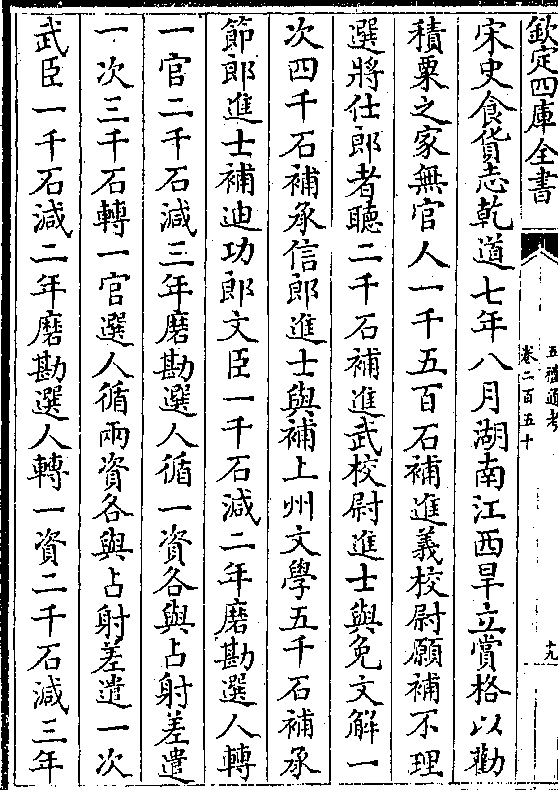 欽定四庫全書
五禮通考
卷二百五十
十九
宋史食貨志乾道七年八月湖南江西旱立賞格以勸
積粟之家無官人一千五百石補進義校尉願補不理
選將仕郎者聽二千石補進武校尉進士與免文解一
次四千石補承信郎進士與補上州文學五千石補承
節郎進士補迪功郎文臣一千石減二年磨勘選人轉
一官二千石減三年磨勘選人循一資各與占射差遣
一次三千石轉一官選人循兩資各與占射差遣一次
武臣一千石減二年磨勘選人轉一資二千石減三年